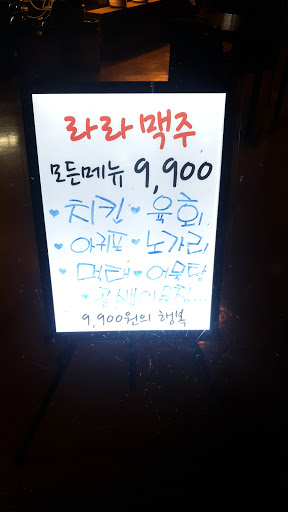 라라 맥주
모든메뉴 9,900
♥치킨♥육회
♥아귀포♥노가리
♥먹태♥어묵탕
♥골뱅이무침...
9,900원의 행복